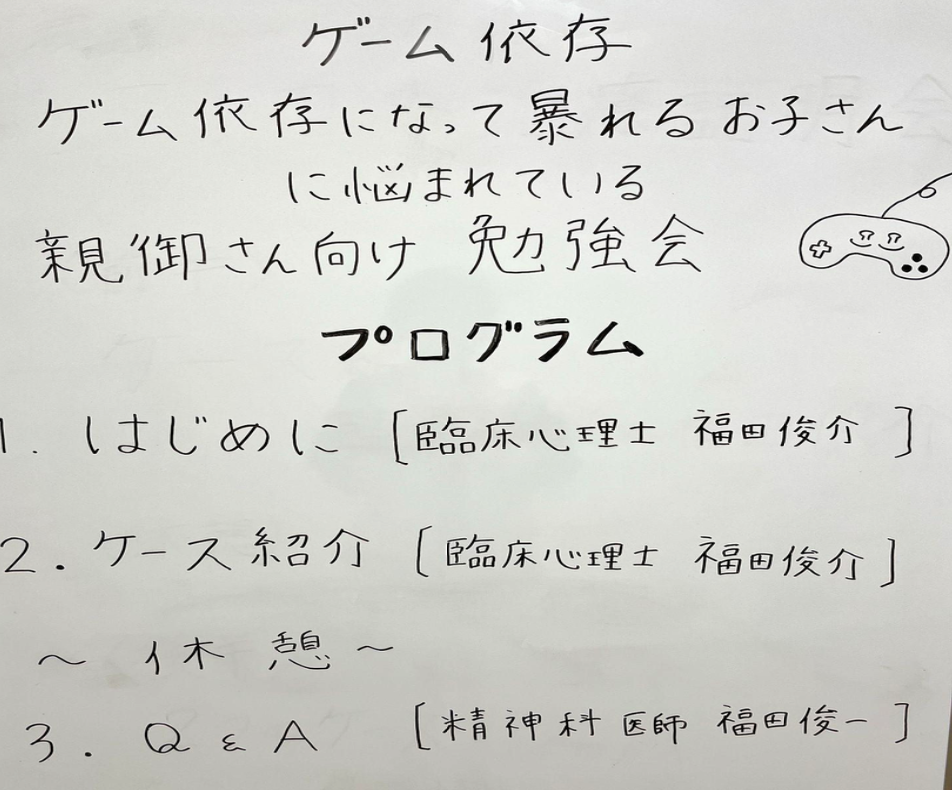 ゲーム依存
ゲーム依存になって暴れるお子さん
に悩まれている
親御さん向け 勉強会
プログラム
1. はじめに [臨床心理士 福田俊介]
2. ケース紹介 [臨床心理士 福田俊介]
～ 休憩 ～
3. Q & A [精神科医師 福田俊一]